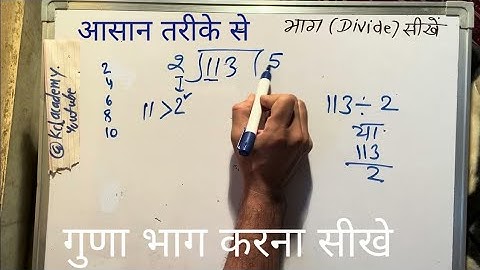 आसान तरीके से
भाग (Divide) सीखें
@kclacademy.
Youtube
2
4
6
8
10
2 ) 113 ( 5
I
11 > 2 ✓
113 ÷ 2
या
113
2
गुणा भाग करना सीखे